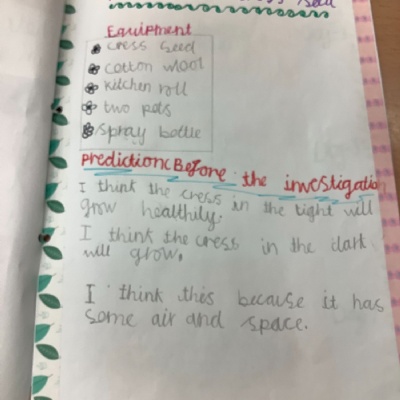 Seed
Equipment
cress seed
cotton wool
kitchen roll
two pots
spray bottle
prediction: Before the investigation
I think the cress in the light will
grow healthily.
I think the cress in the dark
will grow.
I think this because it has
some air and space.